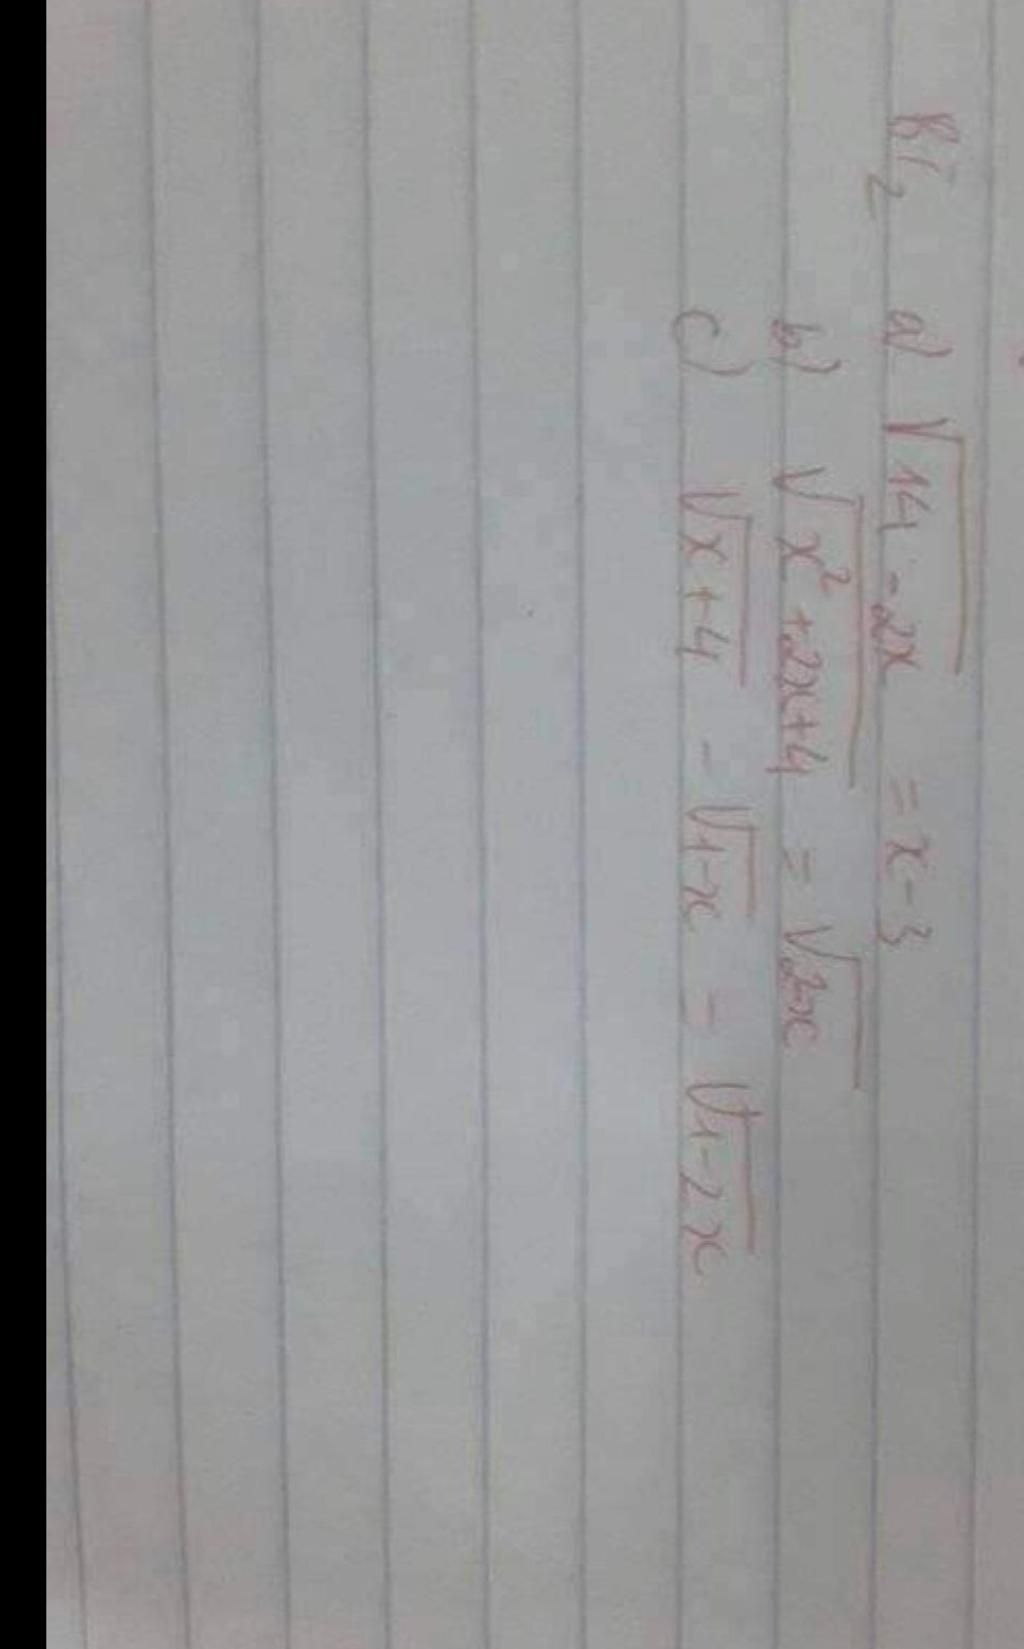 BT2 a) √14-2x = x-3
b) √x²+2x+4 = √2-x
c) √x+4 - √1-x = √1-2x